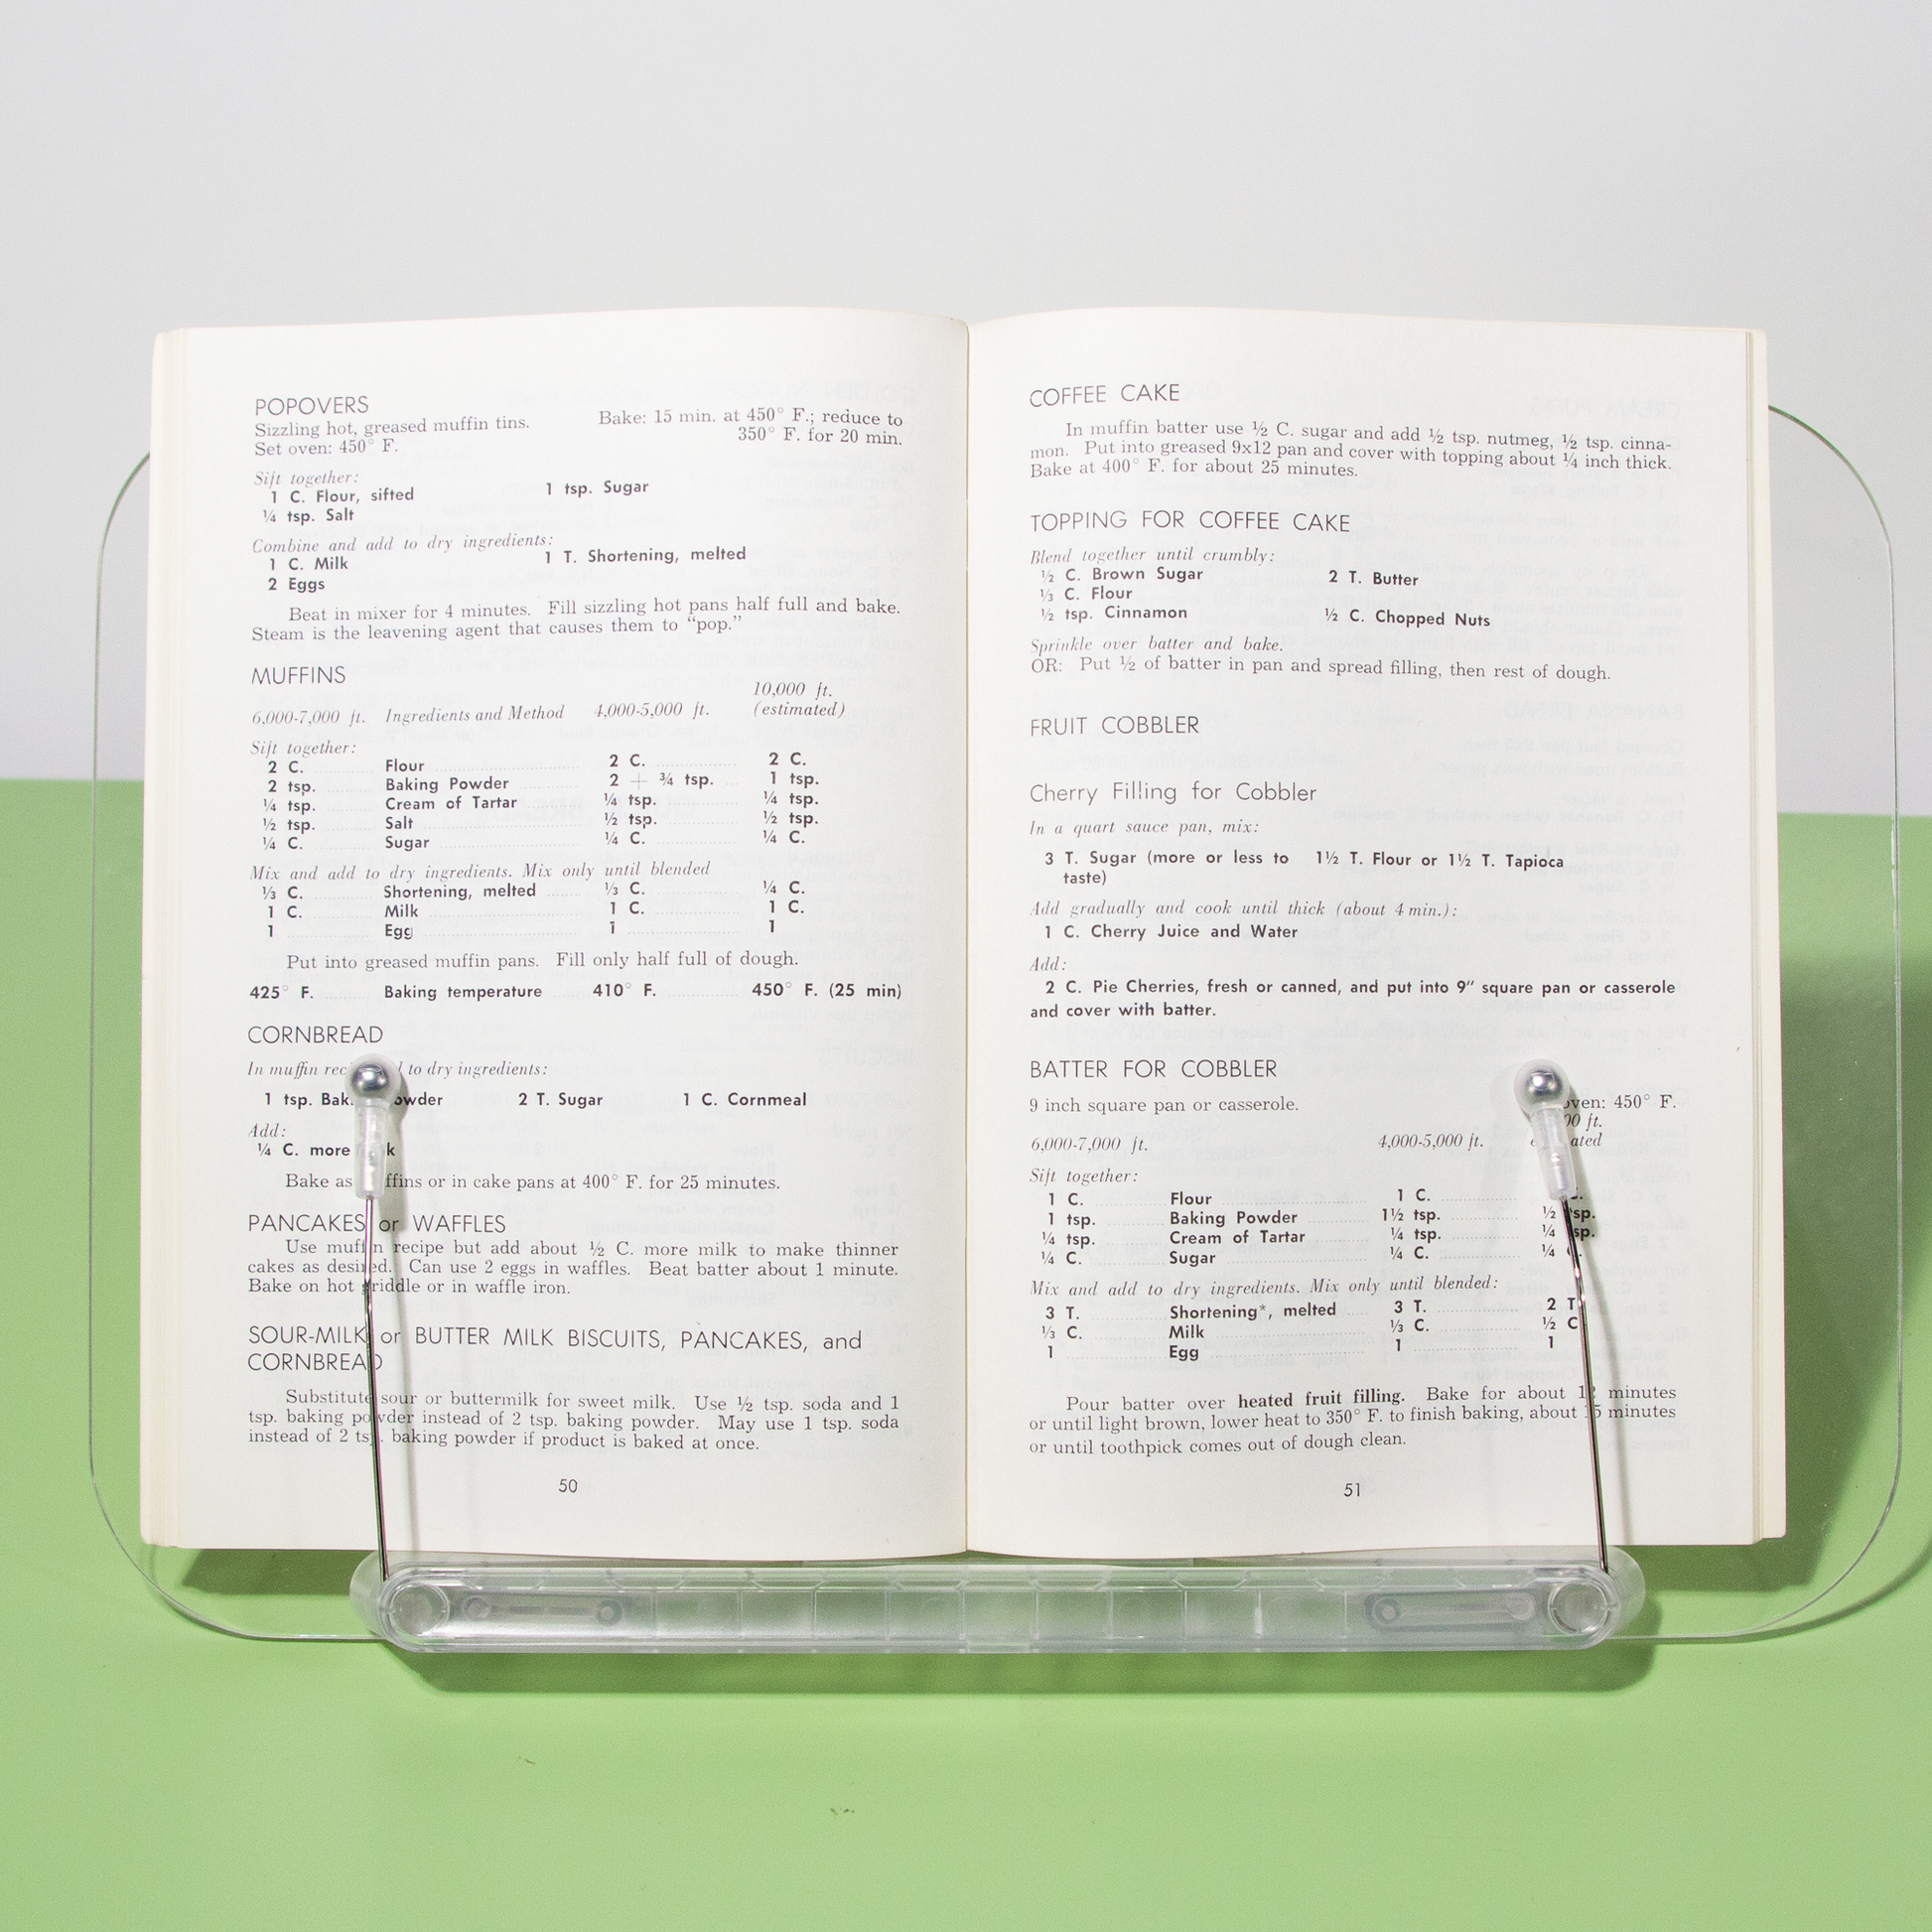 POPOVERS
Sizzling hot, greased muffin tins. Bake: 15 min. at 450° F.; reduce to
Set oven: 450° F. 350° F. for 20 min.
Sift together:
1 C. Flour, sifted 1 tsp. Sugar
¼ tsp. Salt
Combine and add to dry ingredients:
1 C. Milk 1 T. Shortening, melted
2 Eggs
Beat in mixer for 4 minutes. Fill sizzling hot pans half full and bake.
Steam is the leavening agent that causes them to “pop.”
MUFFINS
10,000 ft.
6,000-7,000 ft. Ingredients and Method 4,000-5,000 ft. (estimated)
Sift together:
2 C. Flour 2 C. 2 C.
2 tsp. Baking Powder 2 + ¾ tsp. 1 tsp.
¼ tsp. Cream of Tartar ¼ tsp. ¼ tsp.
½ tsp. Salt ½ tsp. ½ tsp.
¼ C. Sugar ¼ C. ¼ C.
Mix and add to dry ingredients. Mix only until blended
⅓ C. Shortening, melted ⅓ C. ¼ C.
1 C. Milk 1 C. 1 C.
1 Egg 1 1
Put into greased muffin pans. Fill only half full of dough.
425° F. Baking temperature 410° F. 450° F. (25 min)
CORNBREAD
In muffin to dry ingredients:
1 tsp. 2 T. Sugar 1 C. Cornmeal
Add:
¼ C. more
Bake as or in cake pans at 400° F. for 25 minutes.
PANCAKES or WAFFLES
Use muffin recipe but add about ½ C. more milk to make thinner
cakes as desired. Can use 2 eggs in waffles. Beat batter about 1 minute.
Bake on hot griddle or in waffle iron.
SOUR-MILK or BUTTER MILK BISCUITS, PANCAKES, and
CORNBREAD
Substitute sour or buttermilk for sweet milk. Use ½ tsp. soda and 1
tsp. baking powder instead of 2 tsp. baking powder. May use 1 tsp. soda
instead of 2 tsp. baking powder if product is baked at once.
50
COFFEE CAKE
In muffin batter use ½ C. sugar and add ½ tsp. nutmeg, ½ tsp. cinna-
mon. Put into greased 9x12 pan and cover with topping about ¼ inch thick.
Bake at 400° F. for about 25 minutes.
TOPPING FOR COFFEE CAKE
Blend together until crumbly:
½ C. Brown Sugar 2 T. Butter
⅓ C. Flour
½ tsp. Cinnamon ½ C. Chopped Nuts
Sprinkle over batter and bake.
OR: Put ½ of batter in pan and spread filling, then rest of dough.
FRUIT COBBLER
Cherry Filling for Cobbler
In a quart sauce pan, mix:
3 T. Sugar (more or less to 1½ T. Flour or 1½ T. Tapioca
taste)
Add gradually and cook until thick (about 4 min.):
1 C. Cherry Juice and Water
Add:
2 C. Pie Cherries, fresh or canned, and put into 9″ square pan or casserole
and cover with batter.
BATTER FOR COBBLER
9 inch square pan or casserole. 450° F.
ft.
6,000-7,000 ft. 4,000-5,000 ft.
Sift together:
1 C. Flour 1 C.
1 tsp. Baking Powder 1½ tsp. ½ tsp.
¼ tsp. Cream of Tartar ¼ tsp. ¼ tsp.
¼ C. Sugar ¼ C. ¼
Mix and add to dry ingredients. Mix only until blended:
3 T. Shortening*, melted 3 T. 2 T
⅓ C. Milk ⅓ C. ½ C
1 Egg 1 1
Pour batter over heated fruit filling. Bake for about minutes
or until light brown, lower heat to 350° F. to finish baking, about 15 minutes
or until toothpick comes out of dough clean.
51